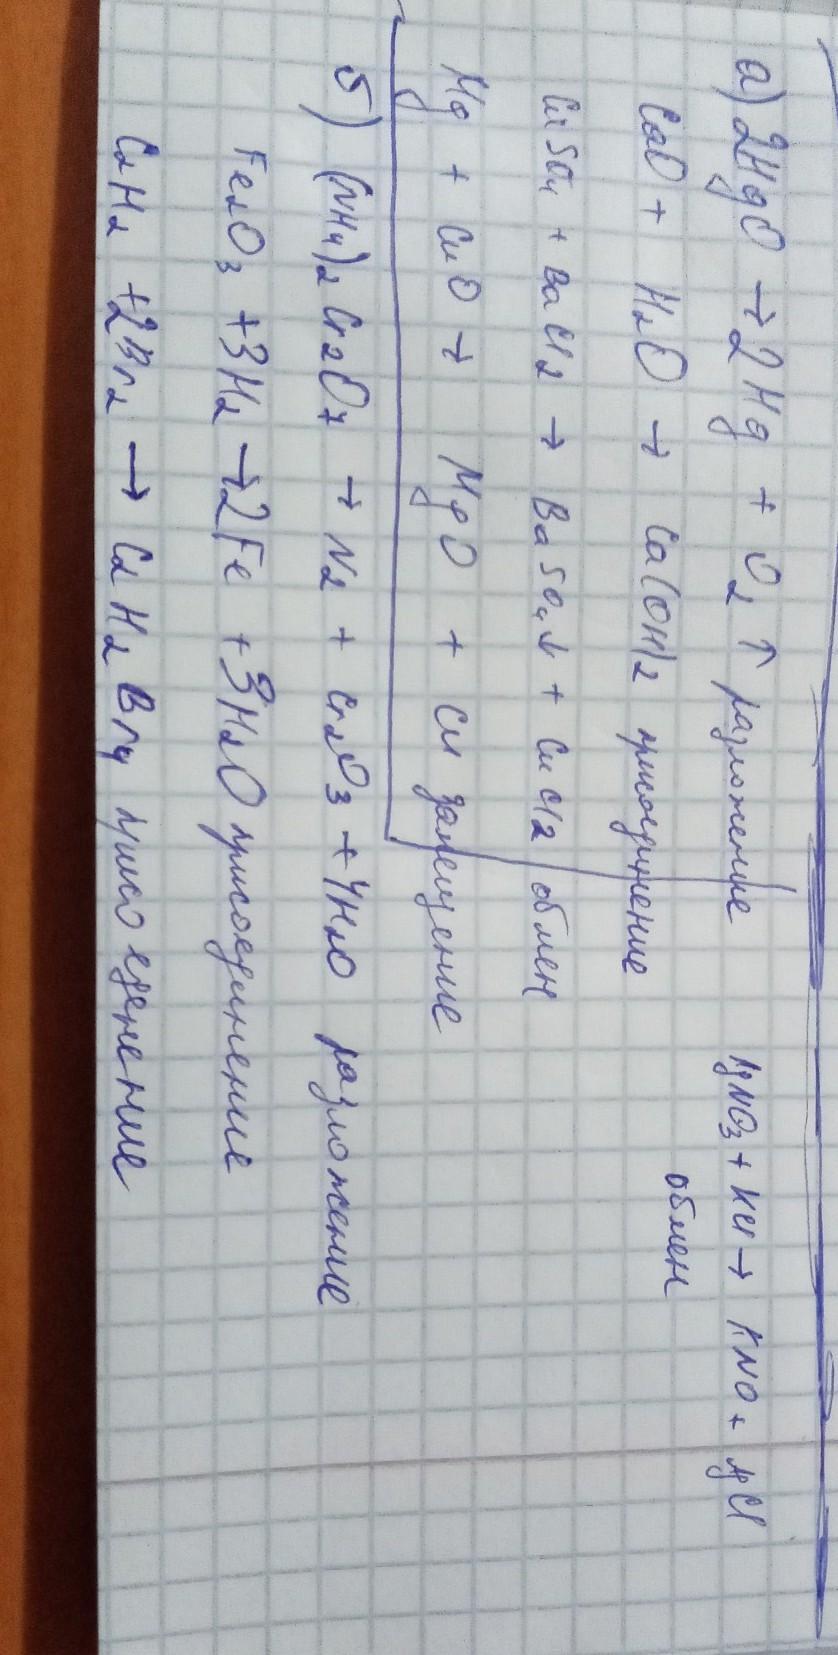 а) 2HgO → 2Hg + O2 ↑ разложение
AgNO3 + KCl → KNO + AgCl
обмен
CaO + H2O → Ca(OH)2 присоединение
CuSO4 + BaCl2 → BaSO4↓ + CuCl2 обмен
Mg + CuO → MgO + Cu замещение
б) (NH4)2Cr2O7 → N2 + Cr2O3 + 4H2O разложение
Fe2O3 + 3H2 → 2Fe + 3H2O присоединение
C2H2 + 2Br2 → C2H2Br4 присоеденение